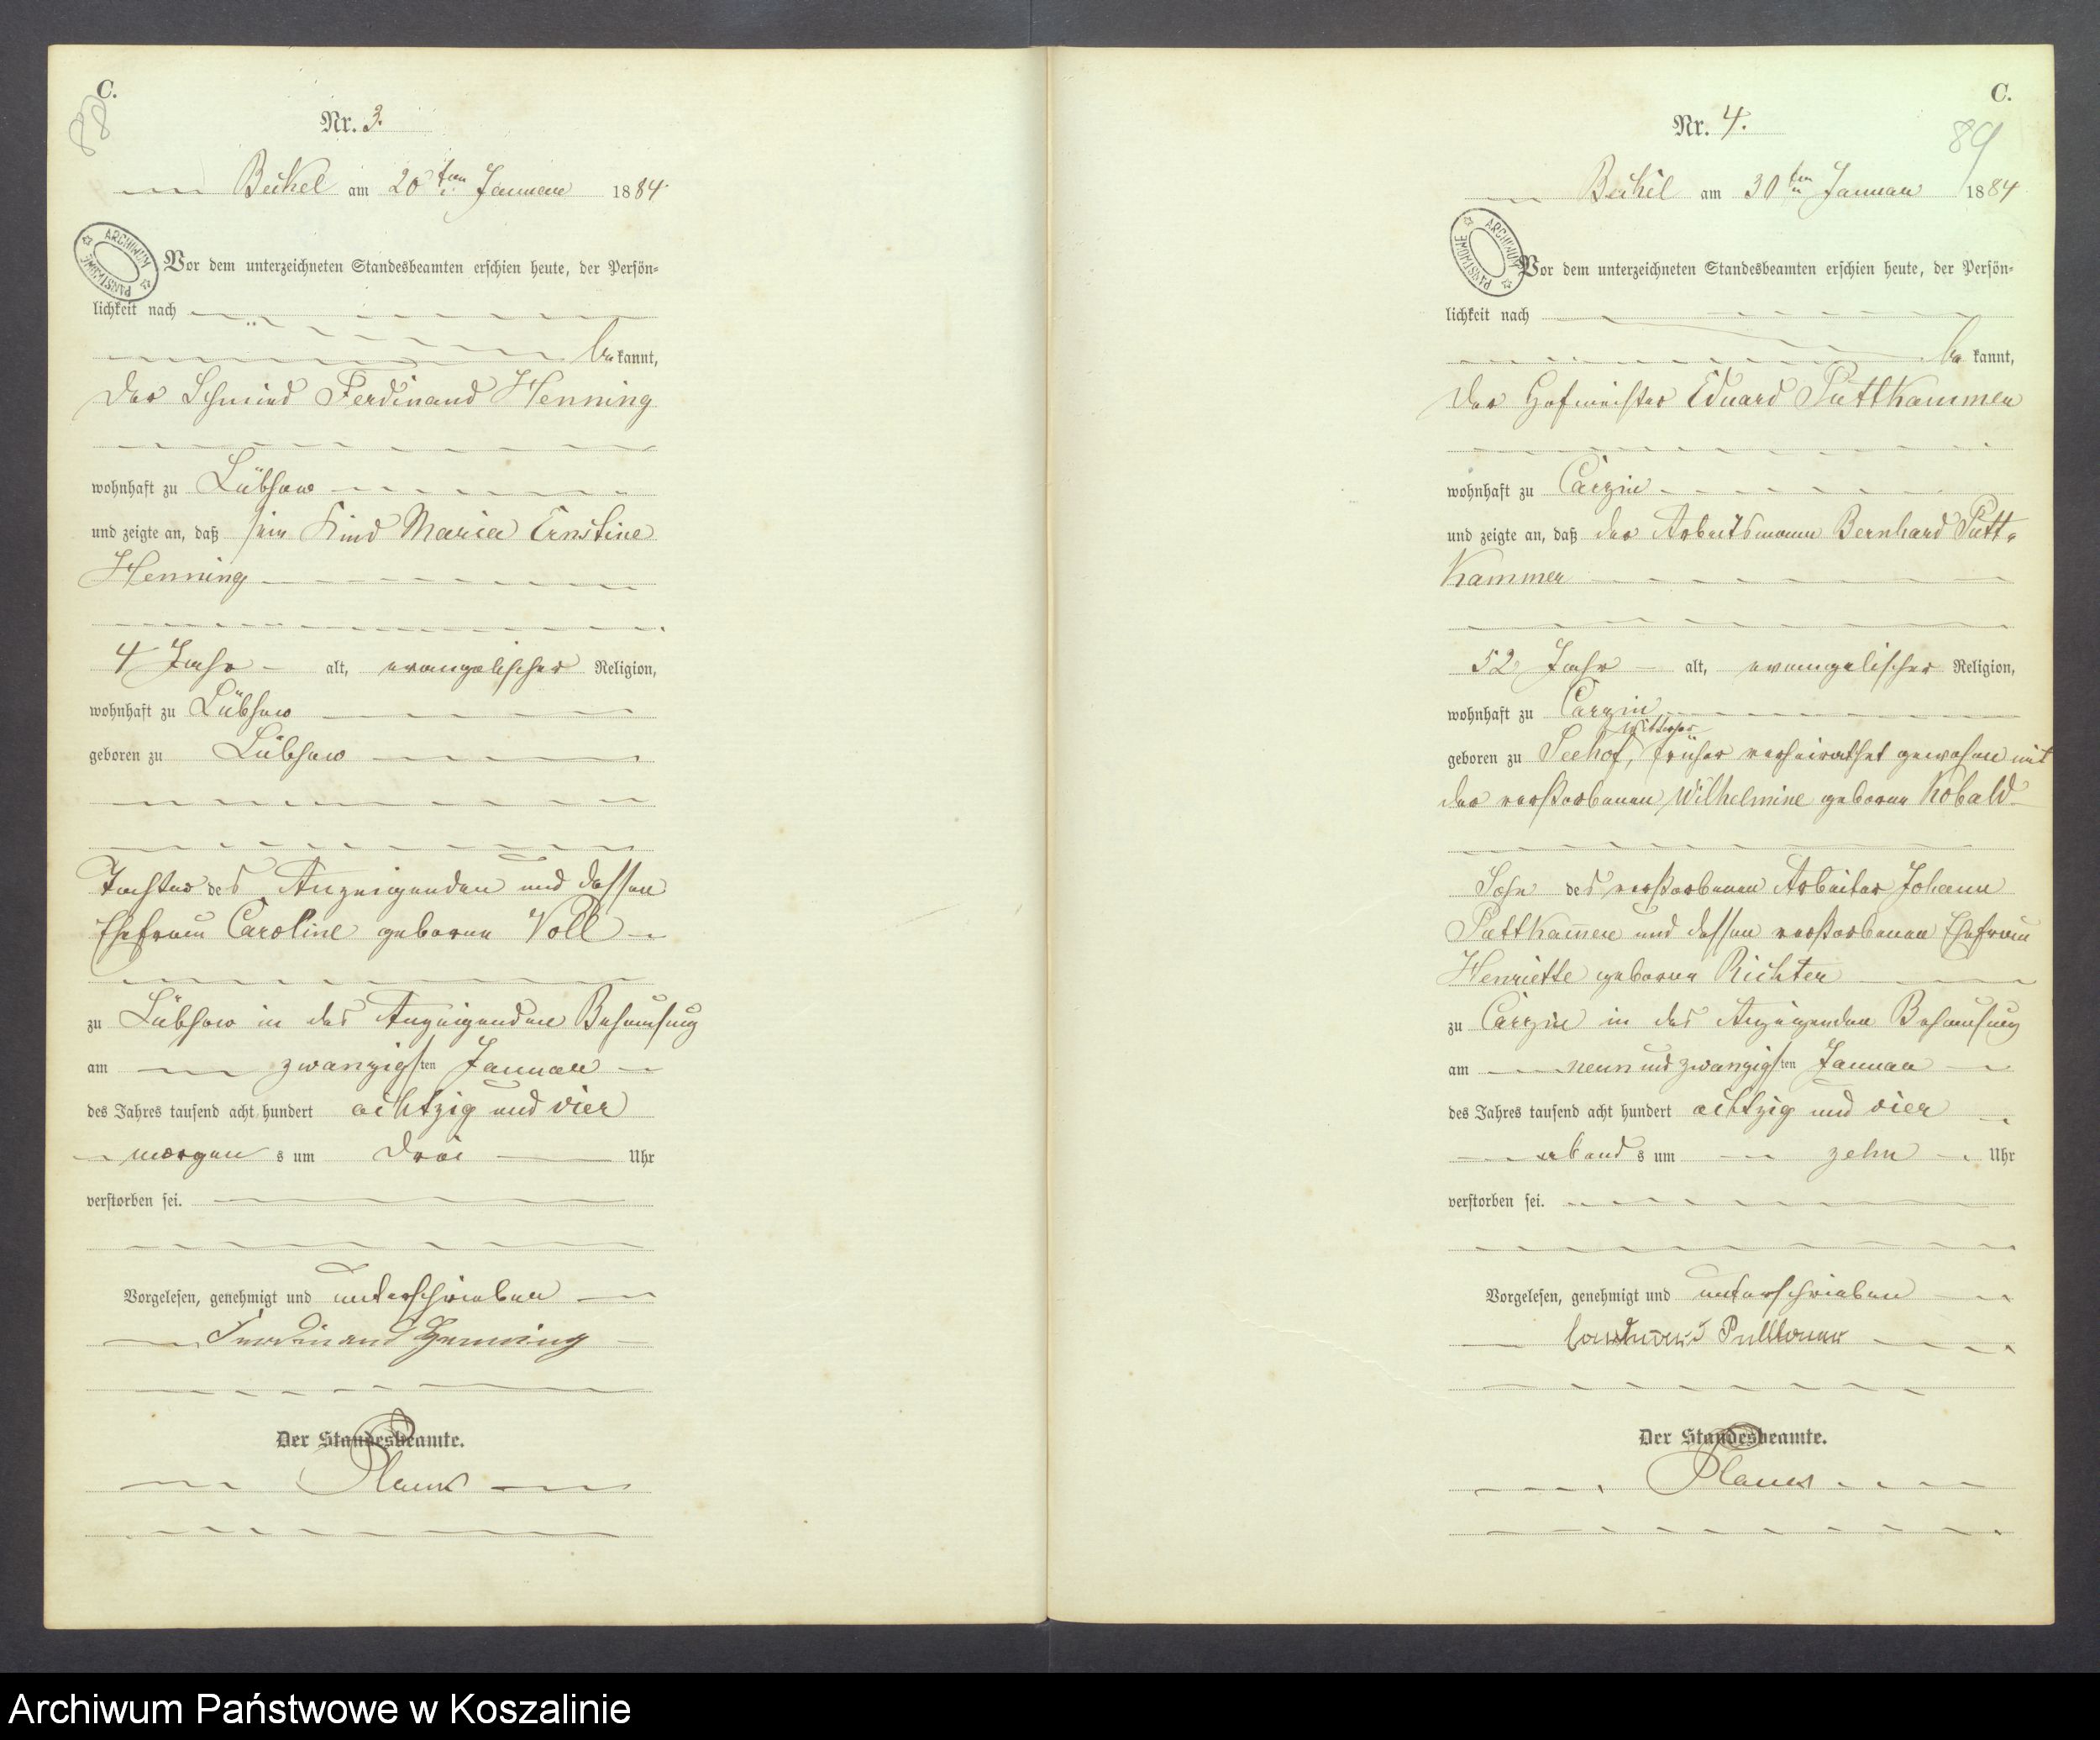 C.
88
Nr. 3.
Beckel am 20ten Januar 1884.
ARCHIWUM PAŃSTWOWE
Vor dem unterzeichneten Standesbeamten erschien heute, der Persön-
lichkeit nach
be kannt,
der Schmied Ferdinand Henning
wohnhaft zu Lübsow
und zeigte an, daß sein Kind Maria Ernstine
Henning
4 Jahr alt, evangelischer Religion,
wohnhaft zu Lübsow
geboren zu Lübsow
Tochter des Anzeigenden und dessen
Ehefrau Caroline geborne Voll
zu Lübsow in des Anzeigenden Behausung
am zwanzigsten Januar
des Jahres tausend acht hundert achtzig und vier
morgen s um drei Uhr
verstorben sei.
Vorgelesen, genehmigt und unterschrieben
Ferdinand Henning
Der Standesbeamte.
C.
89
Nr. 4.
Beckel am 30ten Januar 1884
ARCHIWUM PAŃSTWOWE
Vor dem unterzeichneten Standesbeamten erschien heute, der Persön-
lichkeit nach
be kannt,
der Hofmeister Eduard Puttkammer
wohnhaft zu Carzin
und zeigte an, daß der Arbeitsmann Bernhard Putt-
kammer
52 Jahr alt, evangelischer Religion,
wohnhaft zu Carzin
Wittwer
geboren zu Seehof, früher verheirathet gewesen mit
der verstorbenen Wilhelmine geborne Kobald
Sohn des verstorbenen Arbeiter Johann
Puttkamer und dessen verstorbenen Ehefrau
Henriette geborne Richter
zu Carzin in des Anzeigenden Behausung
am neun und zwanzigsten Januar
des Jahres tausend acht hundert achtzig und vier
abend s um zehn Uhr
verstorben sei.
Vorgelesen, genehmigt und unterschrieben
Der Standesbeamte.
Archiwum Państwowe w Koszalinie